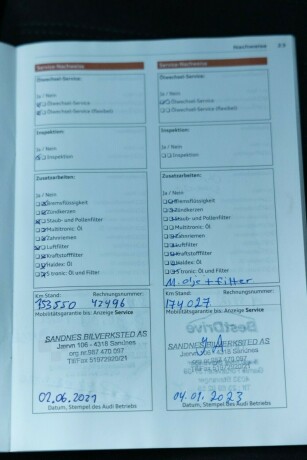 Nachweise 23
Service-Nachweise
Ölwechsel-Service:
Ja / Nein
Ölwechsel-Service
Ölwechsel-Service (flexibel)
Inspektion:
Ja / Nein
Inspektion
Zusatzarbeiten:
Ja / Nein
Bremsflüssigkeit
Zündkerzen
Staub- und Pollenfilter
Multitronic Öl
Zahnriemen
Luftfilter
Kraftstofffilter
Haldex Öl
S tronic: Öl und Filter
Km Stand: Rechnungsnummer:
153550 47496
Mobilitätsgarantie bis: Anzeige Service
SANDNES BILVERKSTED AS
Jærvn 106 - 4318 Sandnes
org.nr.987 470 097
Tlf/Fax 51972020/21
02.06.2021
Datum, Stempel des Audi Betriebs
Service-Nachweise
Ölwechsel-Service:
Ja / Nein
Ölwechsel-Service
Ölwechsel-Service (flexibel)
Inspektion:
Ja / Nein
Inspektion
Zusatzarbeiten:
Ja / Nein
Bremsflüssigkeit
Zündkerzen
Staub- und Pollenfilter
Multitronic Öl
Zahnriemen
Luftfilter
Kraftstofffilter
Haldex Öl
S tronic: Öl und Filter
M. olje + filter
Km Stand: Rechnungsnummer:
174027
Mobilitätsgarantie bis: Anzeige Service
SANDNES BILVERKSTED AS
Jærvn 106 - 4318 Sandnes
org.nr.987 470 097
Tlf/Fax 51972020/21
04.01.2023
Datum, Stempel des Audi Betriebs